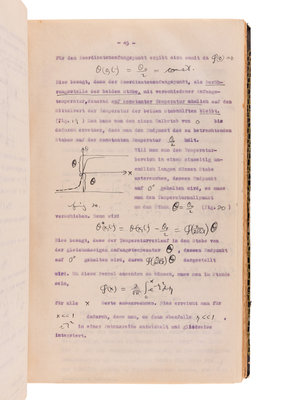 - 49 -
Für den Koordinatenanfangspunkt ergibt sich somit da
Θ(0,t) = Θ₀/2 = const.
Dies besagt, dass der Koordinatenanfangspunkt, als
der beiden Stäbe, mit verschiedener Anfangs-
temperatur, dauernd auf konstanter Temperatur nämlich auf dem
Mittelwert der Temperatur der beiden Stabhälften bleibt.
Man kann nun den einen Halbstab von 0 bis
dadurch ersetzen, dass man den Endpunkt des zu betrachtenden
Stabes auf der konstanten Temperatur hält.
Will man den Temperatur-
bereich in einem einseitig un-
endlich langen dünnen Stabe
untersuchen, dessen Endpunkt
auf 0° gehalten wird, so muss
man den Temperaturnullpunkt
um den Stück
verschieben. Dann wird
Dies besagt, dass der Temperaturverlauf in dem Stabe von
der gleichmässigen Anfangstemperatur Θ, dessen Endpunkt
auf 0° gehalten wird, durch dargestellt
wird. Um diese Formel auswerten zu können, muss man im Stande
sein,
für alle x Werte auszurechnen. Dies erreicht man für
x<<1 dadurch, dass man, da dann ebenfalls
in einer Potenzreihe entwickelt und gliedweise
integriert.